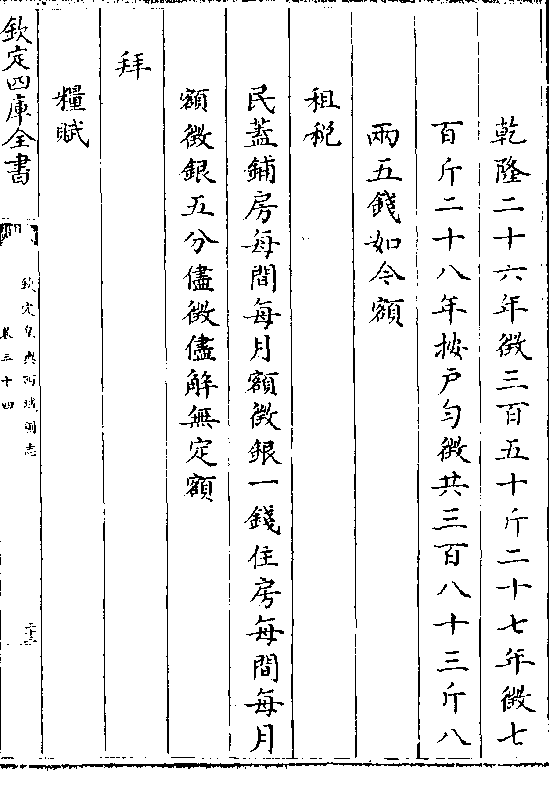 乾隆二十六年徵三百五十斤二十七年徵七
百斤二十八年按戸勻徵共三百八十三斤八
兩五錢如今額
租稅
民蓋鋪房每間每月額徵銀一錢住房每間每月
額徵銀五分儘徵儘解無定額
拜
糧賦
欽定四庫全書
欽定皇輿西域圖志
卷三十四
二十三